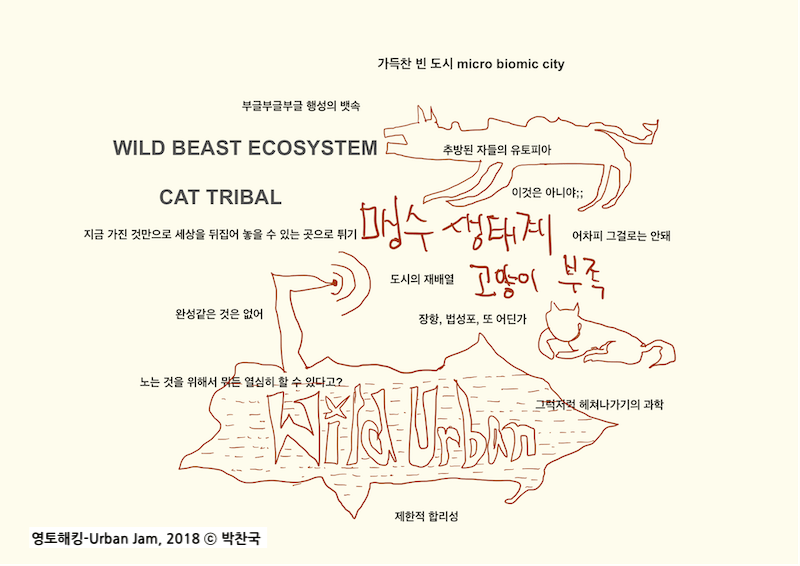 가득찬 빈 도시 micro biomic city
부글부글부글 행성의 뱃속
WILD BEAST ECOSYSTEM
추방된 자들의 유토피아
CAT TRIBAL
이것은 아니야;;
지금 가진 것만으로 세상을 뒤집어 놓을 수 있는 곳으로 튀기
맹수 생태계
어차피 그걸로는 안돼
도시의 재배열
고양이 부족
완성같은 것은 없어
장항, 법성포, 또 어딘가
노는 것을 위해서 뭐든 열심히 할 수 있다고?
그럭저럭 헤쳐나가기의 과학
Wild Urban
제한적 합리성
영토해킹-Urban Jam, 2018 ⓒ 박찬국